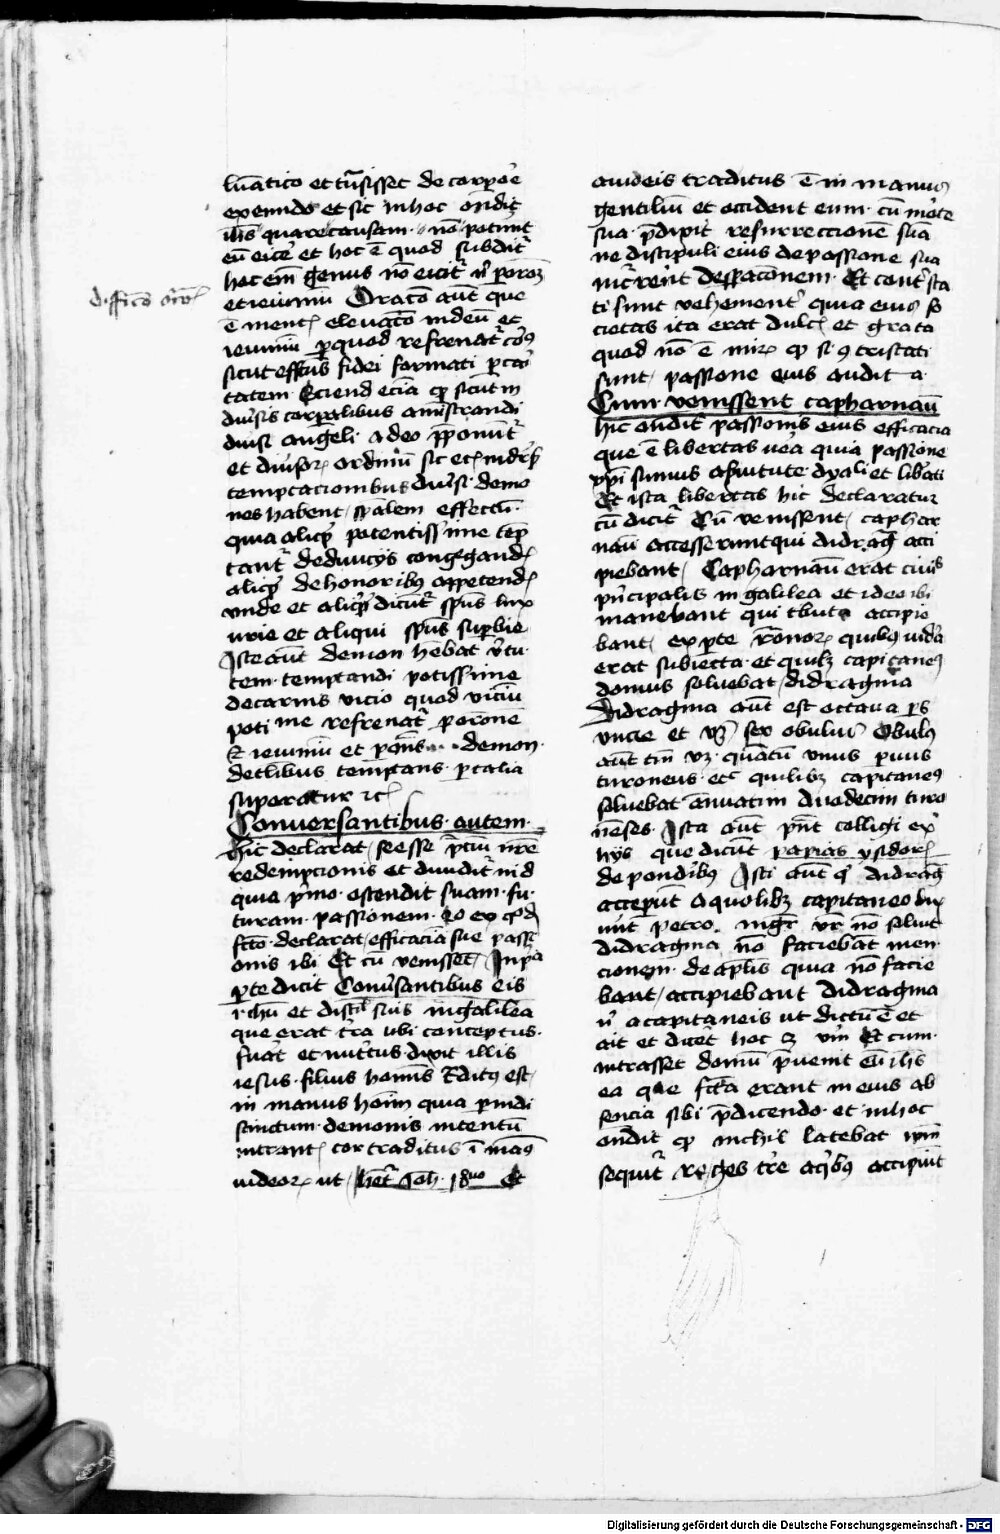 diffico oro
lunatico et transisset de corpore
exeundo et sic in hoc ondit
illis quare causam non potuerunt
eum eicere et hoc e quod subditur
hoc enim genus non eicitur nisi per orationem
et ieiunium Oratio autem que
e mentis elevatio in deum et
ieiunium per quod refrenatur corpus
sicut effectus fidei formati per cari
tatem Sciendum eciam quod sicut in
diversis corporalibus
diversi angeli adeo preponuntur
et diversorum ordinum sic etiam in
temptacionibus diversi demo
nes habent specialem effectum
quia aliqui potentissime temp
tant de divicijs congregandis
aliqui de honoribus appetendis
unde et aliqui dicuntur spiritus lux
urie et aliqui spiritus superbie
Iste autem demon habebat virtu
tem temptandi potissime
de carnis vicio quod vicium
poti me refrenatur per oracionem
et ieiunium et demon
de talibus temptans per talia
superatur etc
Conversantibus autem
hic declarat se esse precium nostre
redempcionis et dividitur in
quia primo ostendit suam fu
turam passionem
declarat efficaciam sue passi
onis ibi Et cum venissent In prima
parte dicit Conversantibus eis
et discipulis suis in galilea
que erat terra ubi conceptus
fuerat et nutritus dixit illis
iesus filius hominis traditus est
in manus hominum quia per iudi
stinctum demonis intentum
intrantis cor traditus in manus
iudeorum ut habetur Joh 18vo Et
a iudeis traditus e in manus
gentilium et occident eum cum morte
sua predixit resurreccionem suam
ne discipuli eius de passione sua
incurrerent desperacionem Et contrista
ti sunt vehementer quia eius so
cietas ita erat dulcis et grata
quod non e mirum quod si contristati
sunt passione eius audita
Cum venissent capharnaum
hic ondit passionis eius efficacia
que e libertas vera quia passione
xpi sumus a servitute dyaboli et liberati
Et ista libertas hic declaratur
cum dicitur Cum venissent caphar
naum accesserunt qui didragma acci
piebant Capharnaum erat civitas
principalis in galilea et ideo ibi
manebant qui tributa accipie
bant ex parte romanorum quibus iudea
erat subiecta et quilibet capitaneus
domus solvebat didragma
Didragma autem est octava pars
uncie et valet sex obulum Obulus
autem tantum valet quantum unus parvus
turonensis et quilibet capitaneus
solvebat annuatim duodecim turo
nenses Ista autem possunt colligi ex
hijs que dicunt papias ysidorus
de ponderibus Isti autem qui didragma
acceperunt a quolibet capitaneo dix
erunt petro magister vester non solvit
didragma non faciebant men
cionem de apostolis quia non facie
bant accipiebant didragma
nisi a capitaneis ut dictum e et
ait et diceret hoc Et cum
intrasset domum prevenit eum ihs
ea que facta erant in eius ab
sencia sibi predicendo et in hoc
ondit quod nichil latebat ipsum
sequitur reges terre a quibus accipiunt
Digitalisierung gefördert durch die Deutsche Forschungsgemeinschaft - DFG